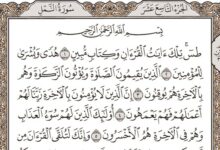 الجزء التاسع عشر سورة النمل
بسم الله الرحمن الرحيم
طس تلك ءايت القرءان وكتاب مبين ١ هدى وبشرى
للمؤمنين ٢ الذين يقيمون الصلوة ويؤتون الزكوة وهم
بالءاخرة هم يوقنون ٣ إن الذين لا يؤمنون بالءاخرة زينا لهم
أعملهم فهم يعمهون ٤ أولئك الذين لهم سوء العذاب
وهم في الءاخرة هم الأخسرون ٥ وإنك لتلقى القرءان من